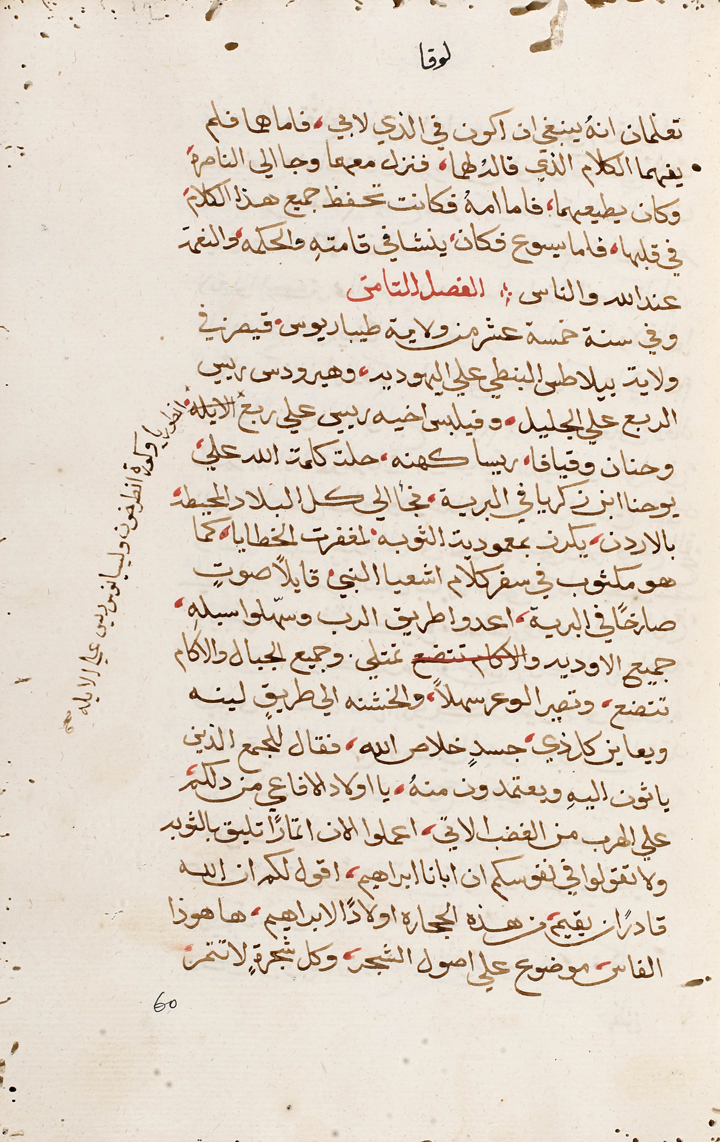 لوقا
تعلمان انهُ ينبغي ان اكون في الذي لابي، فاما هما فلم
يفهما الكلام الذي قاله لهما، فنزل معهما وجا الي الناصرة
وكان يطيعهما، فاما امهُ فكانت تحفظ جميع هذا الكلام
في قلبها، فاما يسوع فكان ينشا في قامتهِ والحكمه والنعمة
عند الله والناس ⁘ الفصل الثامن
وفي سنة خمسة عشر من ولاية طيباريوس قيصر في
ولاية بيلاطس البنطي علي اليهوديه، وهيرودس رييس
الربع علي الجليل، وفيلبس اخيه رييس علي ربع الايله
انطوريا وكورة انطرخون وليسانوس رييس علي الايله
وحنان وقيافا، ريسا كهنه، حلت كلمة الله علي
يوحنا ابن زكريا في البرية، فجا الي كل البلاد المحيطه
بالاردن، يكرز بمعمودية التوبه لمغفرت الخطايا، كما
هو مكتوب في سفر كلام اشعيا النبي قايلاً صوتٍ
صارخًا في البرية، اعدوا طريق الرب وسهّلوا سبله،
جميع الاوديه والاكام تتضع تمتلي. وجميع الجبال والاكام
تتضع، وتصير الوعر سهلاً، والخشنه الي طريقٍ لينه
ويعاين كل ذي جسدٍ خلاص الله، فقال للجمع الذين
ياتون اليهِ ويعتمدون منهُ، يا اولاد الافاعي من دلكم
علي الهرب من الغضب الاتي، اعملوا الان اثمارًا تليق بالتوبه
ولا تقولوا في نفوسكم ان ابانا ابراهيم، اقول لكم ان الله
قادرًا ان يقيم من هذه الحجاره اولادًا لابراهيم، ها هوذا
الفاس موضوع علي اصول الشجر، وكل شجرةٍ لا تثمر
60